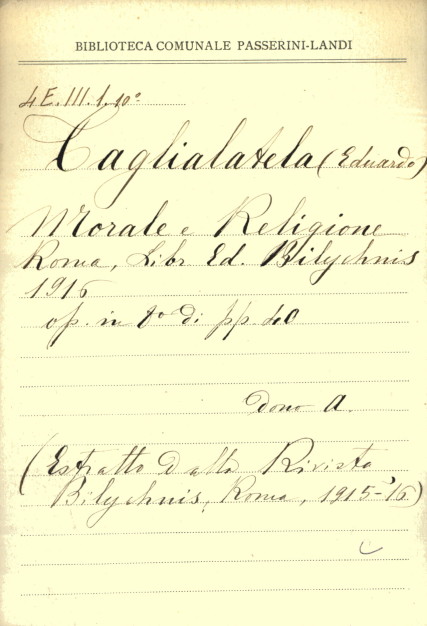 BIBLIOTECA COMUNALE PASSERINI-LANDI
4E.III.1.10°
Taglialatela (Eduardo)
Morale e Religione
Roma, Libr Ed. Bilychnis
1916
op. in 8° di pp. 40
dono A.
(Estratto dalla Rivista
Bilychnis, Roma, 1915-16)